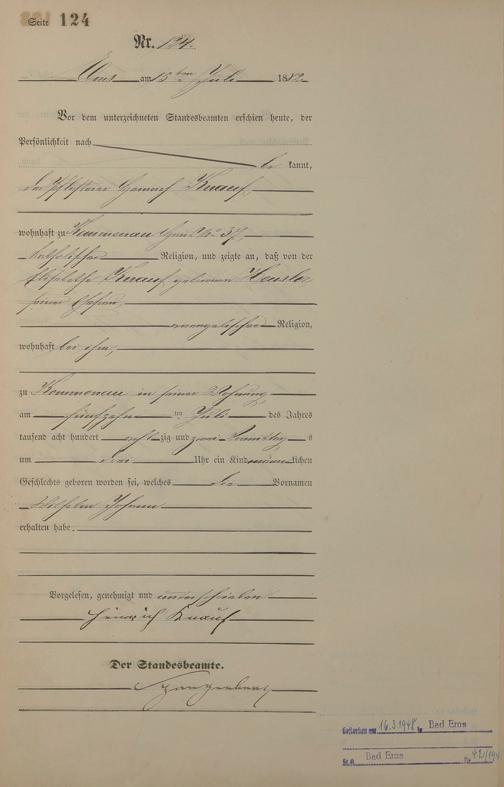 Seite 124
Nr. 124.
Ems am 15ten Juli 1882
Vor dem unterzeichneten Standesbeamten erschien heute, der
Persönlichkeit nach
be kannt,
der Heinrich Knauf,
wohnhaft zu Kemmenau
katholischer Religion, und zeigte an, daß von der
Elisabetha Knauf geborenen
seiner Ehefrau,
evangelischer Religion,
wohnhaft bei ihm,
zu Kemmenau in seiner Wohnung,
am fünfzehn ten Juli des Jahres
tausend acht hundert achtzig und zwei Vormittags
um drei Uhr ein Kind männlichen
Geschlechts geboren worden sei, welches die Vornamen
Wilhelm Johann
erhalten habe.
Vorgelesen, genehmigt und unterschrieben
Heinrich Knauf
Der Standesbeamte.
Gestorben am 16.3.1948 in Bad Ems
St.A. Bad Ems Nr. 42/194